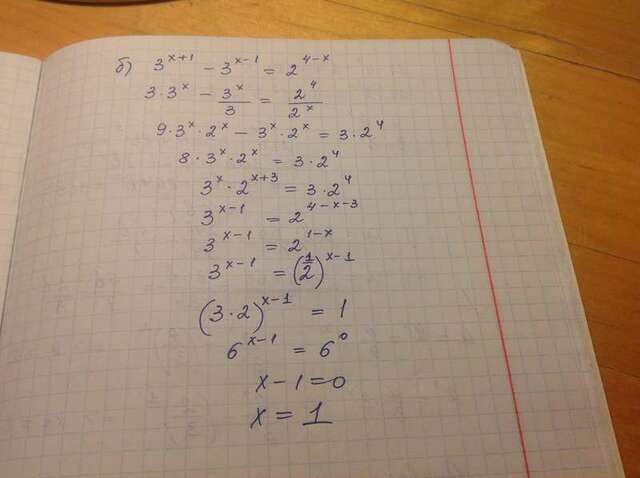 б) 3^{x+1} - 3^{x-1} = 2^{4-x}
3·3^x - \frac{3^x}{3} = \frac{2^4}{2^x}
9·3^x·2^x - 3^x·2^x = 3·2^4
8·3^x·2^x = 3·2^4
3^x·2^{x+3} = 3·2^4
3^{x-1} = 2^{4-x-3}
3^{x-1} = 2^{1-x}
3^{x-1} = (\frac{1}{2})^{x-1}
(3·2)^{x-1} = 1
6^{x-1} = 6^0
x-1=0
x = 1